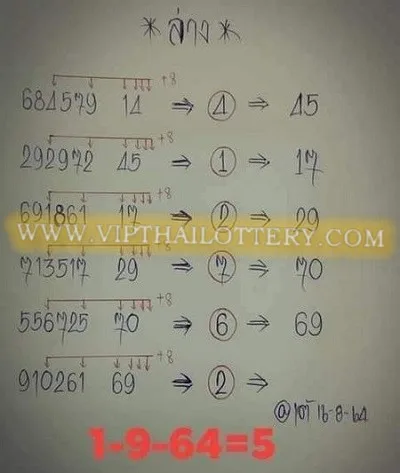 * ล่าง *
+8
684579 14 ⇒ 4 ⇒ 45
+8
292972 45 ⇒ 1 ⇒ 17
+8
691861 17 ⇒ 2 ⇒ 29
WWW.VIPTHAILOTTERY.COM
+8
713517 29 ⇒ 7 ⇒ 70
+8
556725 70 ⇒ 6 ⇒ 69
+8
910261 69 ⇒ 2 ⇒
16-8-64
1-9-64=5